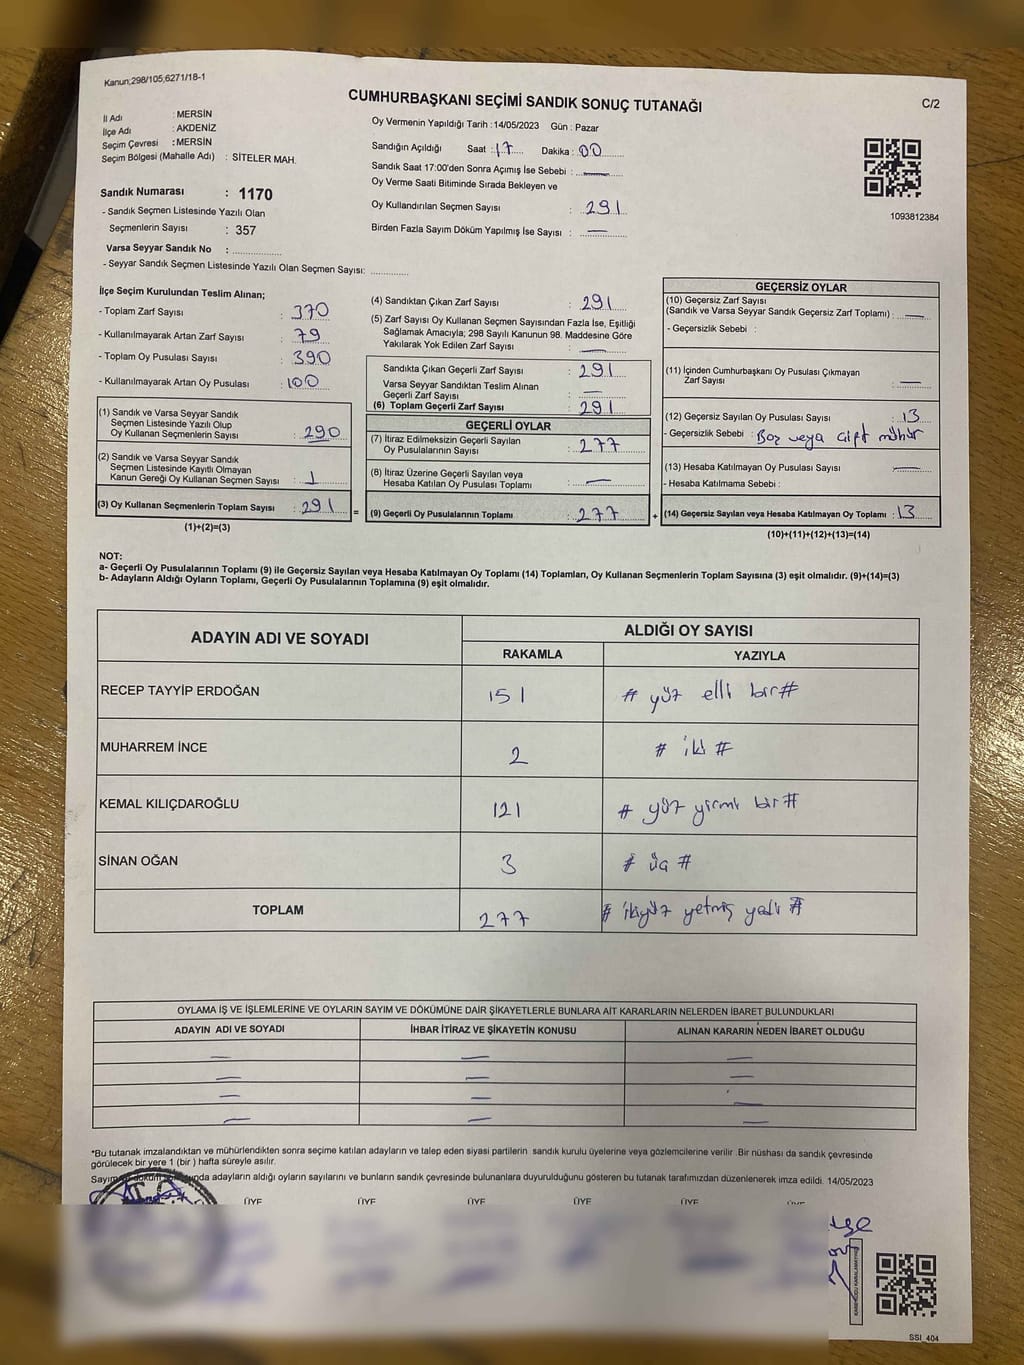 Kanun;298/105;6271/18-1
CUMHURBAŞKANI SEÇİMİ SANDIK SONUÇ TUTANAĞI
C/2
İl Adı : MERSİN
İlçe Adı : AKDENİZ
Seçim Çevresi : MERSİN
Seçim Bölgesi (Mahalle Adı) : SİTELER MAH.
Sandık Numarası : 1170
- Sandık Seçmen Listesinde Yazılı Olan
Seçmenlerin Sayısı : 357
Varsa Seyyar Sandık No :
- Seyyar Sandık Seçmen Listesinde Yazılı Olan Seçmen Sayısı:
Oy Vermenin Yapıldığı Tarih : 14/05/2023 Gün : Pazar
Sandığın Açıldığı Saat : 17 Dakika : 00
Sandık Saat 17:00'den Sonra Açımış İse Sebebi : —
Oy Verme Saati Bitiminde Sırada Bekleyen ve
Oy Kullandırılan Seçmen Sayısı : 291
Birden Fazla Sayım Döküm Yapılmış İse Sayısı : —
1093812384
İlçe Seçim Kurulundan Teslim Alınan;
- Toplam Zarf Sayısı : 370
- Kullanılmayarak Artan Zarf Sayısı : 79
- Toplam Oy Pusulası Sayısı : 390
- Kullanılmayarak Artan Oy Pusulası : 100
(1) Sandık ve Varsa Seyyar Sandık
Seçmen Listesinde Yazılı Olup
Oy Kullanan Seçmenlerin Sayısı : 290
(2) Sandık ve Varsa Seyyar Sandık
Seçmen Listesinde Kayıtlı Olmayan
Kanun Gereği Oy Kullanan Seçmen Sayısı : 1
(3) Oy Kullanan Seçmenlerin Toplam Sayısı : 291 =
(1)+(2)=(3)
(4) Sandıktan Çıkan Zarf Sayısı : 291
(5) Zarf Sayısı Oy Kullanan Seçmen Sayısından Fazla İse, Eşitliği
Sağlamak Amacıyla; 298 Sayılı Kanunun 98. Maddesine Göre
Yakılarak Yok Edilen Zarf Sayısı : —
Sandıkta Çıkan Geçerli Zarf Sayısı : 291
Varsa Seyyar Sandıktan Teslim Alınan
Geçerli Zarf Sayısı : —
(6) Toplam Geçerli Zarf Sayısı : 291
GEÇERLİ OYLAR
(7) İtiraz Edilmeksizin Geçerli Sayılan
Oy Pusulalarının Sayısı : 277
(8) İtiraz Üzerine Geçerli Sayılan veya
Hesaba Katılan Oy Pusulası Toplamı : —
(9) Geçerli Oy Pusulalarının Toplamı : 277 +
GEÇERSİZ OYLAR
(10) Geçersiz Zarf Sayısı
(Sandık ve Varsa Seyyar Sandık Geçersiz Zarf Toplamı) : —
- Geçersizlik Sebebi :
(11) İçinden Cumhurbaşkanı Oy Pusulası Çıkmayan
Zarf Sayısı : —
(12) Geçersiz Sayılan Oy Pusulası Sayısı : 13
- Geçersizlik Sebebi : Boş veya çift mühür
(13) Hesaba Katılmayan Oy Pusulası Sayısı : —
- Hesaba Katılmama Sebebi :
(14) Geçersiz Sayılan veya Hesaba Katılmayan Oy Toplamı : 13
(10)+(11)+(12)+(13)=(14)
NOT:
a- Geçerli Oy Pusulalarının Toplamı (9) ile Geçersiz Sayılan veya Hesaba Katılmayan Oy Toplamı (14) Toplamları, Oy Kullanan Seçmenlerin Toplam Sayısına (3) eşit olmalıdır. (9)+(14)=(3)
b- Adayların Aldığı Oyların Toplamı, Geçerli Oy Pusulalarının Toplamına (9) eşit olmalıdır.
ADAYIN ADI VE SOYADI ALDIĞI OY SAYISI
RAKAMLA YAZIYLA
RECEP TAYYİP ERDOĞAN 151 # yüz elli bir #
MUHARREM İNCE 2 # iki #
KEMAL KILIÇDAROĞLU 121 # yüz yirmi bir #
SİNAN OĞAN 3 # üç #
TOPLAM 277 # ikiyüz yetmiş yedi #
OYLAMA İŞ VE İŞLEMLERİNE VE OYLARIN SAYIM VE DÖKÜMÜNE DAİR ŞİKAYETLERLE BUNLARA AİT KARARLARIN NELERDEN İBARET BULUNDUKLARI
ADAYIN ADI VE SOYADI İHBAR İTİRAZ VE ŞİKAYETİN KONUSU ALINAN KARARIN NEDEN İBARET OLDUĞU
— — —
— — —
— — —
— — —
*Bu tutanak imzalandıktan ve mühürlendikten sonra seçime katılan adayların ve talep eden siyasi partilerin sandık kurulu üyelerine veya gözlemcilerine verilir. Bir nüshası da sandık çevresinde
görülecek bir yere 1 (bir ) hafta süreyle asılır.
Sayım adayların aldığı oyların sayılarını ve bunların sandık çevresinde bulunanlara duyurulduğunu gösteren bu tutanak tarafımızdan düzenlenerek imza edildi. 14/05/2023
T.C.
ÜYE ÜYE ÜYE ÜYE ÜYE
SSI_404